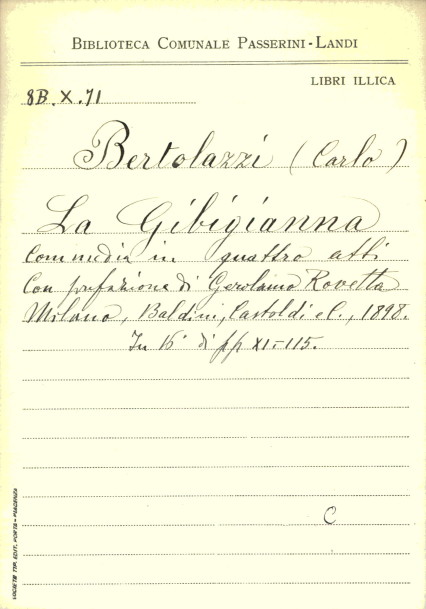 BIBLIOTECA COMUNALE PASSERINI-LANDI
LIBRI ILLICA
8B. X. 71
Bertolazzi (Carlo)
La Gibigianna
Commedia in quattro atti
Con prefazione di Gerolamo Rovetta
Milano, Baldini, Castoldi e C., 1898.
In 16° di pp XI-115.
C
SOCIETÀ TIP. EDIT. PORTA - PIACENZA